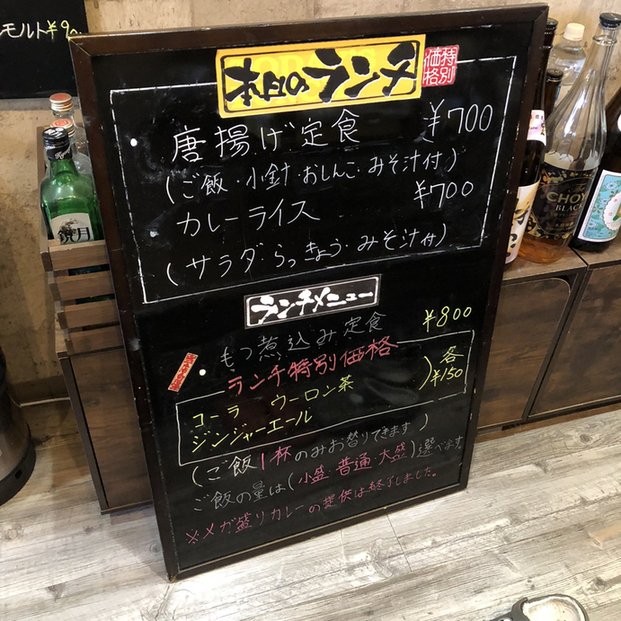 モルト¥9
本日のランチ
特別価格
・唐揚げ定食 ¥700
(ご飯・小針・おしんこ・みそ汁付)
・カレーライス ¥700
(サラダ・らっきょう・みそ汁付)
ランチメニュー
・もつ煮込み定食 ¥800
ランチ特別価格
コーラ ウーロン茶
ジンジャーエール
)各¥150
(ご飯1杯のみお替りできます)
ご飯の量は(小盛・普通・大盛)選べます。
※メガ盛りカレーの提供は終了しました。
CHOYA
BLACK